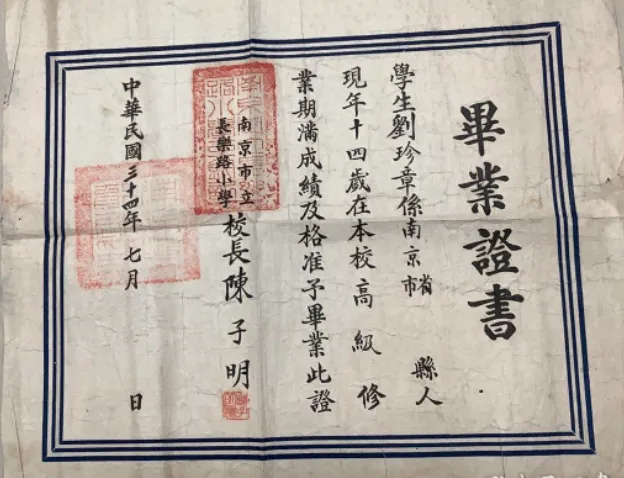 畢業證書
學生劉珍章係南京省市 縣人
現年十四歲在本校高級修
業期滿成績及格准予畢業此證
南京市立
長樂路小學
校長陳子明
中華民國三十四年七月 日